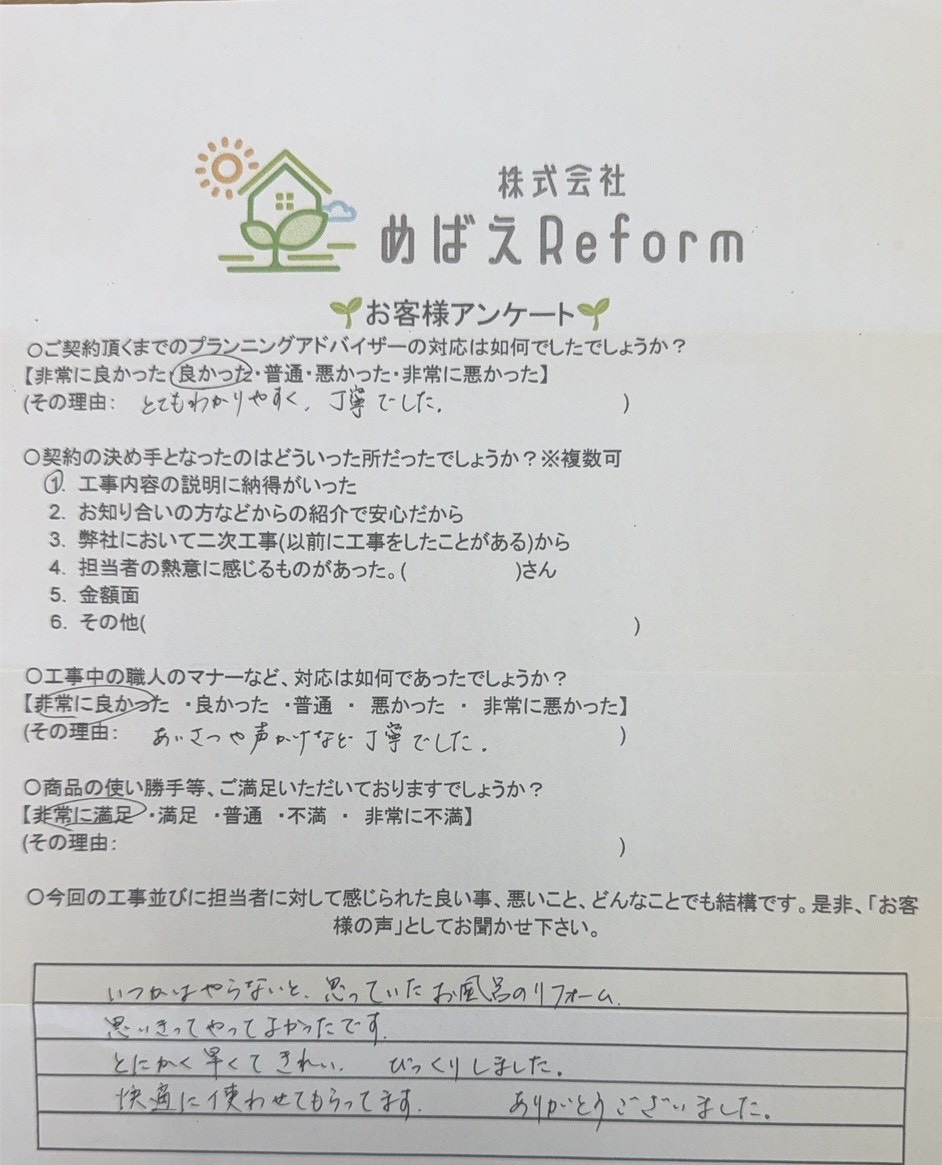 株式会社
めばえReform
お客様アンケート
○ご契約頂くまでのプランニングアドバイザーの対応は如何でしたでしょうか？
【非常に良かった・良かった・普通・悪かった・非常に悪かった】
(その理由： とてもわかりやすく、丁寧でした。 )
○契約の決め手となったのはどういった所だったでしょうか？※複数可
1. 工事内容の説明に納得がいった
2. お知り合いの方などからの紹介で安心だから
3. 弊社において二次工事(以前に工事をしたことがある)から
4. 担当者の熱意に感じるものがあった。( )さん
5. 金額面
6. その他( )
○工事中の職人のマナーなど、対応は如何であったでしょうか？
【非常に良かった ・良かった ・普通 ・ 悪かった ・ 非常に悪かった】
(その理由： あいさつや声かけなど丁寧でした。 )
○商品の使い勝手等、ご満足いただいておりますでしょうか？
【非常に満足 ・満足 ・普通 ・不満 ・ 非常に不満】
(その理由： )
○今回の工事並びに担当者に対して感じられた良い事、悪いこと、どんなことでも結構です。是非、「お客
様の声」としてお聞かせ下さい。
いつかはやらないと、思っていたお風呂のリフォーム、
思いきってやってよかったです。
とにかく早くてきれい、 びっくりしました。
快適に使わせてもらってます。 ありがとうございました。